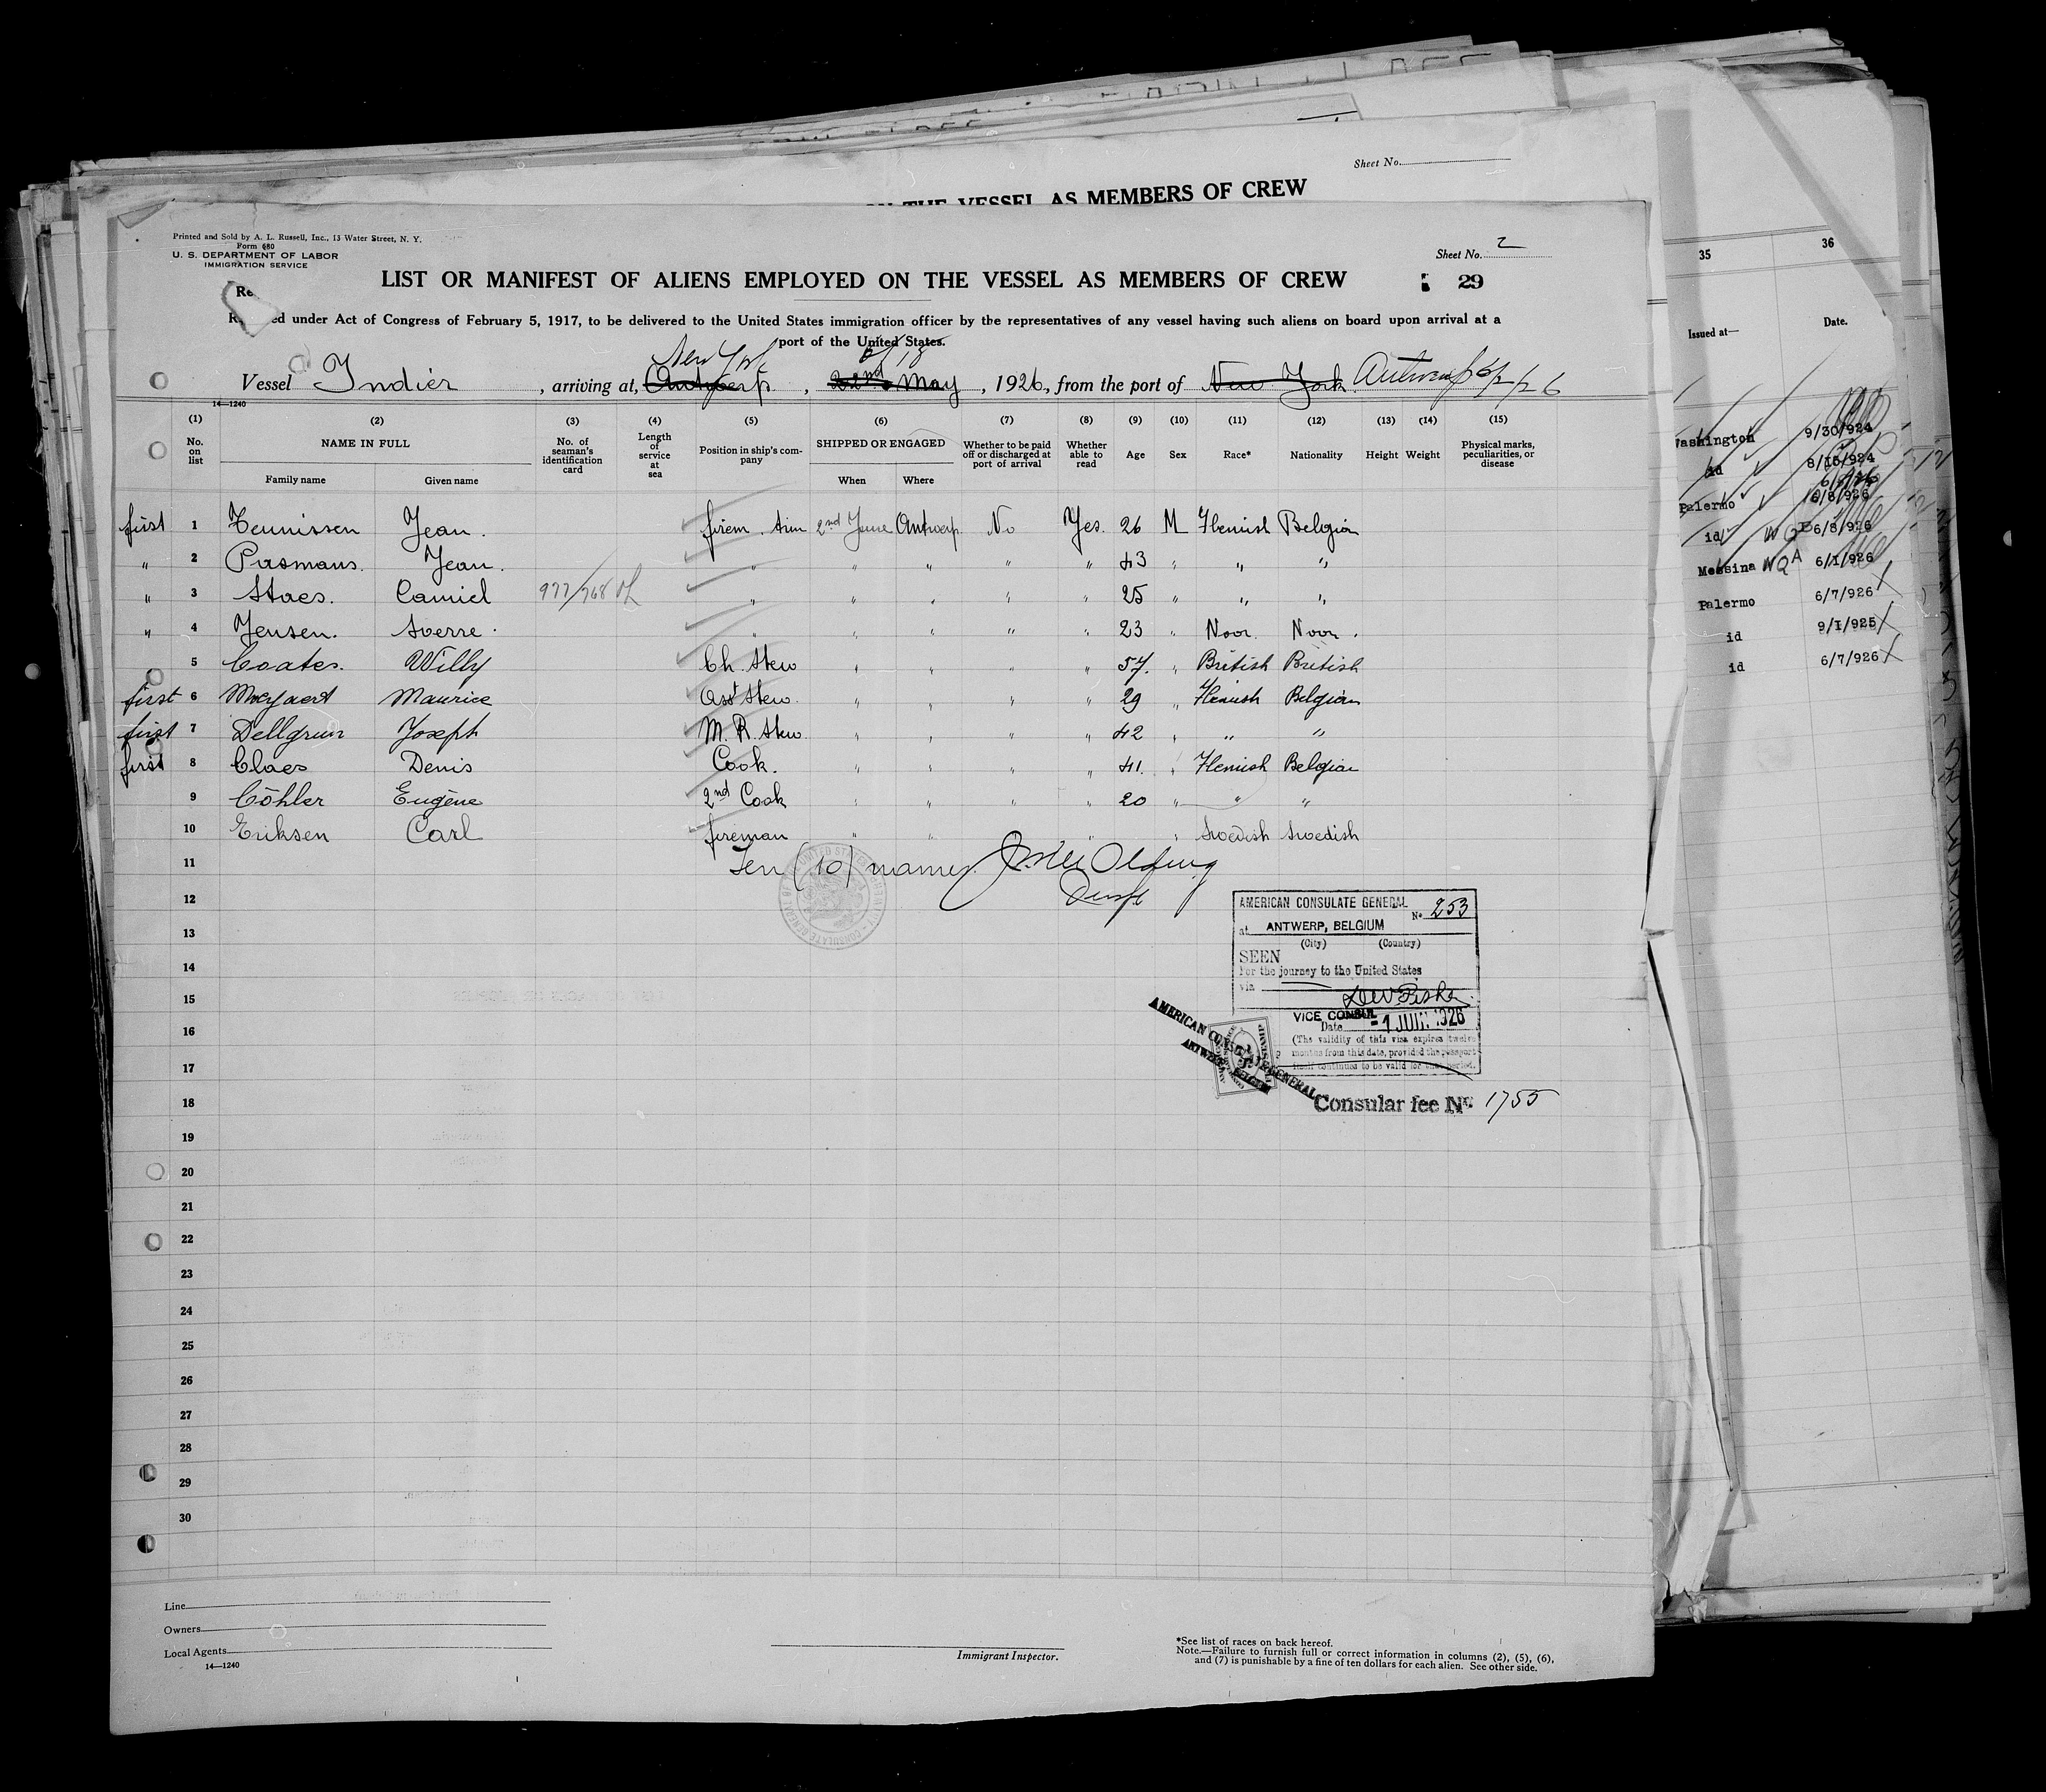 Sheet No.
ON THE VESSEL AS MEMBERS OF CREW
Printed and Sold by A. L. Russell, Inc., 13 Water Street, N. Y.
Form 680
U. S. DEPARTMENT OF LABOR
IMMIGRATION SERVICE
Sheet No. 2
LIST OR MANIFEST OF ALIENS EMPLOYED ON THE VESSEL AS MEMBERS OF CREW
29
under Act of Congress of February 5, 1917, to be delivered to the United States immigration officer by the representatives of any vessel having such aliens on board upon arrival at a
port of the United States.
New York 6/18
Vessel Indier, arriving at, Antwerp, 22nd May, 1926, from the port of New York Antwerp 6/2/26
14—1240
(1) (2) (3) (4) (5) (6) (7) (8) (9) (10) (11) (12) (13) (14) (15)
No. on list
NAME IN FULL
Family name Given name
No. of seaman's identification card
Length of service at sea
Position in ship's company
SHIPPED OR ENGAGED
When Where
Whether to be paid off or discharged at port of arrival
Whether able to read
Age Sex Race* Nationality Height Weight
Physical marks, peculiarities, or disease
first 1 Teunissen Jean. firem. 2nd June Antwerp. No Yes. 26 M Flemish Belgian
" 2 Pasmans. Jean. " " " " " 43 " " "
" 3 Staes. Camiel 977/768 " " " " " 25 " " "
" 4 Jensen. Sverre. " " " " " 23 " Noor. Noor.
5 Coates. Willy Ch. Stew " " " " 57. " British British
first 6 Maurice Asst Stew. " " " " 29 " Flemish Belgian
first 7 Dellgrun Joseph M. R. Stew. " " " " 42 " " "
first 8 Claes Denis Cook. " " " " 41. " Flemish Belgian
9 Cöhler Eugène 2nd Cook " " " " 20 " " "
10 Eriksen Carl fireman " " " " Swedish Swedish
11 Ten (10) names.
12
13
14
15
16
17
18
19
20
21
22
23
24
25
26
27
28
29
30
AMERICAN CONSULATE GENERAL
No 253
at ANTWERP, BELGIUM
(City) (Country)
SEEN
For the journey to the United States
via
VICE CONSUL
Date -1 JUIN 1926
(The validity of this visa expires twelve
months from this date, provided the passport
itself continues to be valid for that period.
AMERICAN CONSULATE GENERAL
ANTWERP, BELGIUM
Consular fee No. 1755
Line
Owners
Local Agents
14—1240
Immigrant Inspector.
*See list of races on back hereof.
Note.—Failure to furnish full or correct information in columns (2), (5), (6),
and (7) is punishable by a fine of ten dollars for each alien. See other side.
35 36
Issued at— Date.
Washington 9/30/924
id 8/15/924
Palermo 6/8/926
id 6/8/926
Messina WQA 6/1/926
Palermo 6/7/926
id 9/1/925
id 6/7/926